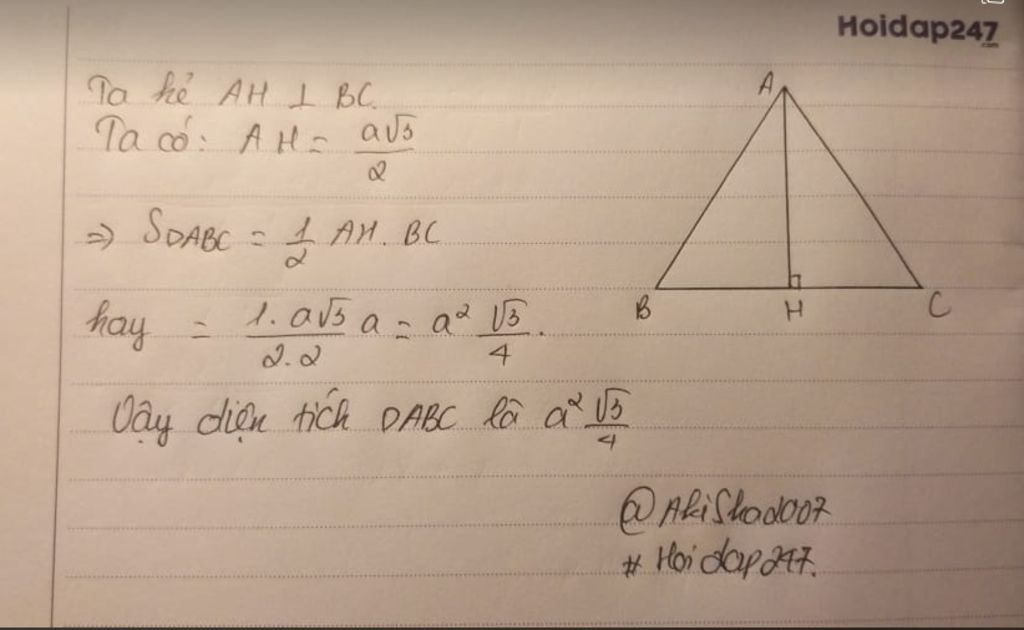 Hoidap247
.com
Ta kẻ AH ⊥ BC.
Ta có: AH = a√3/2
⇒ SDABC = 1/2 AH. BC
hay = 1. a√3/2.2 a = a² √3/4.
Vậy diện tích DABC là a² √3/4
A
B
H
C
@AkiShad007
# Hoidap247.